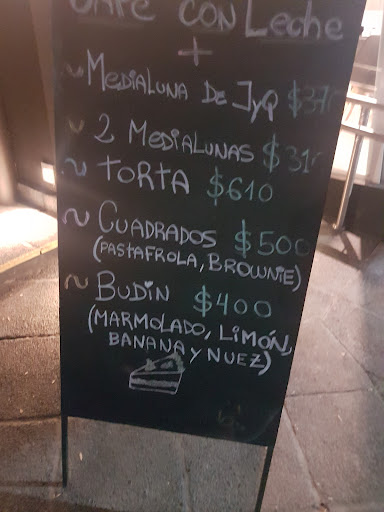 CAFÉ CON LECHE
+
~ MEDIALUNA DE JyQ
~ 2 MEDIALUNAS
~ TORTA $610
~ CUADRADOS $500
(PASTAFROLA, BROWNIE)
~ BUDIN $400
(MARMOLADO, LIMÓN,
BANANA Y NUEZ)